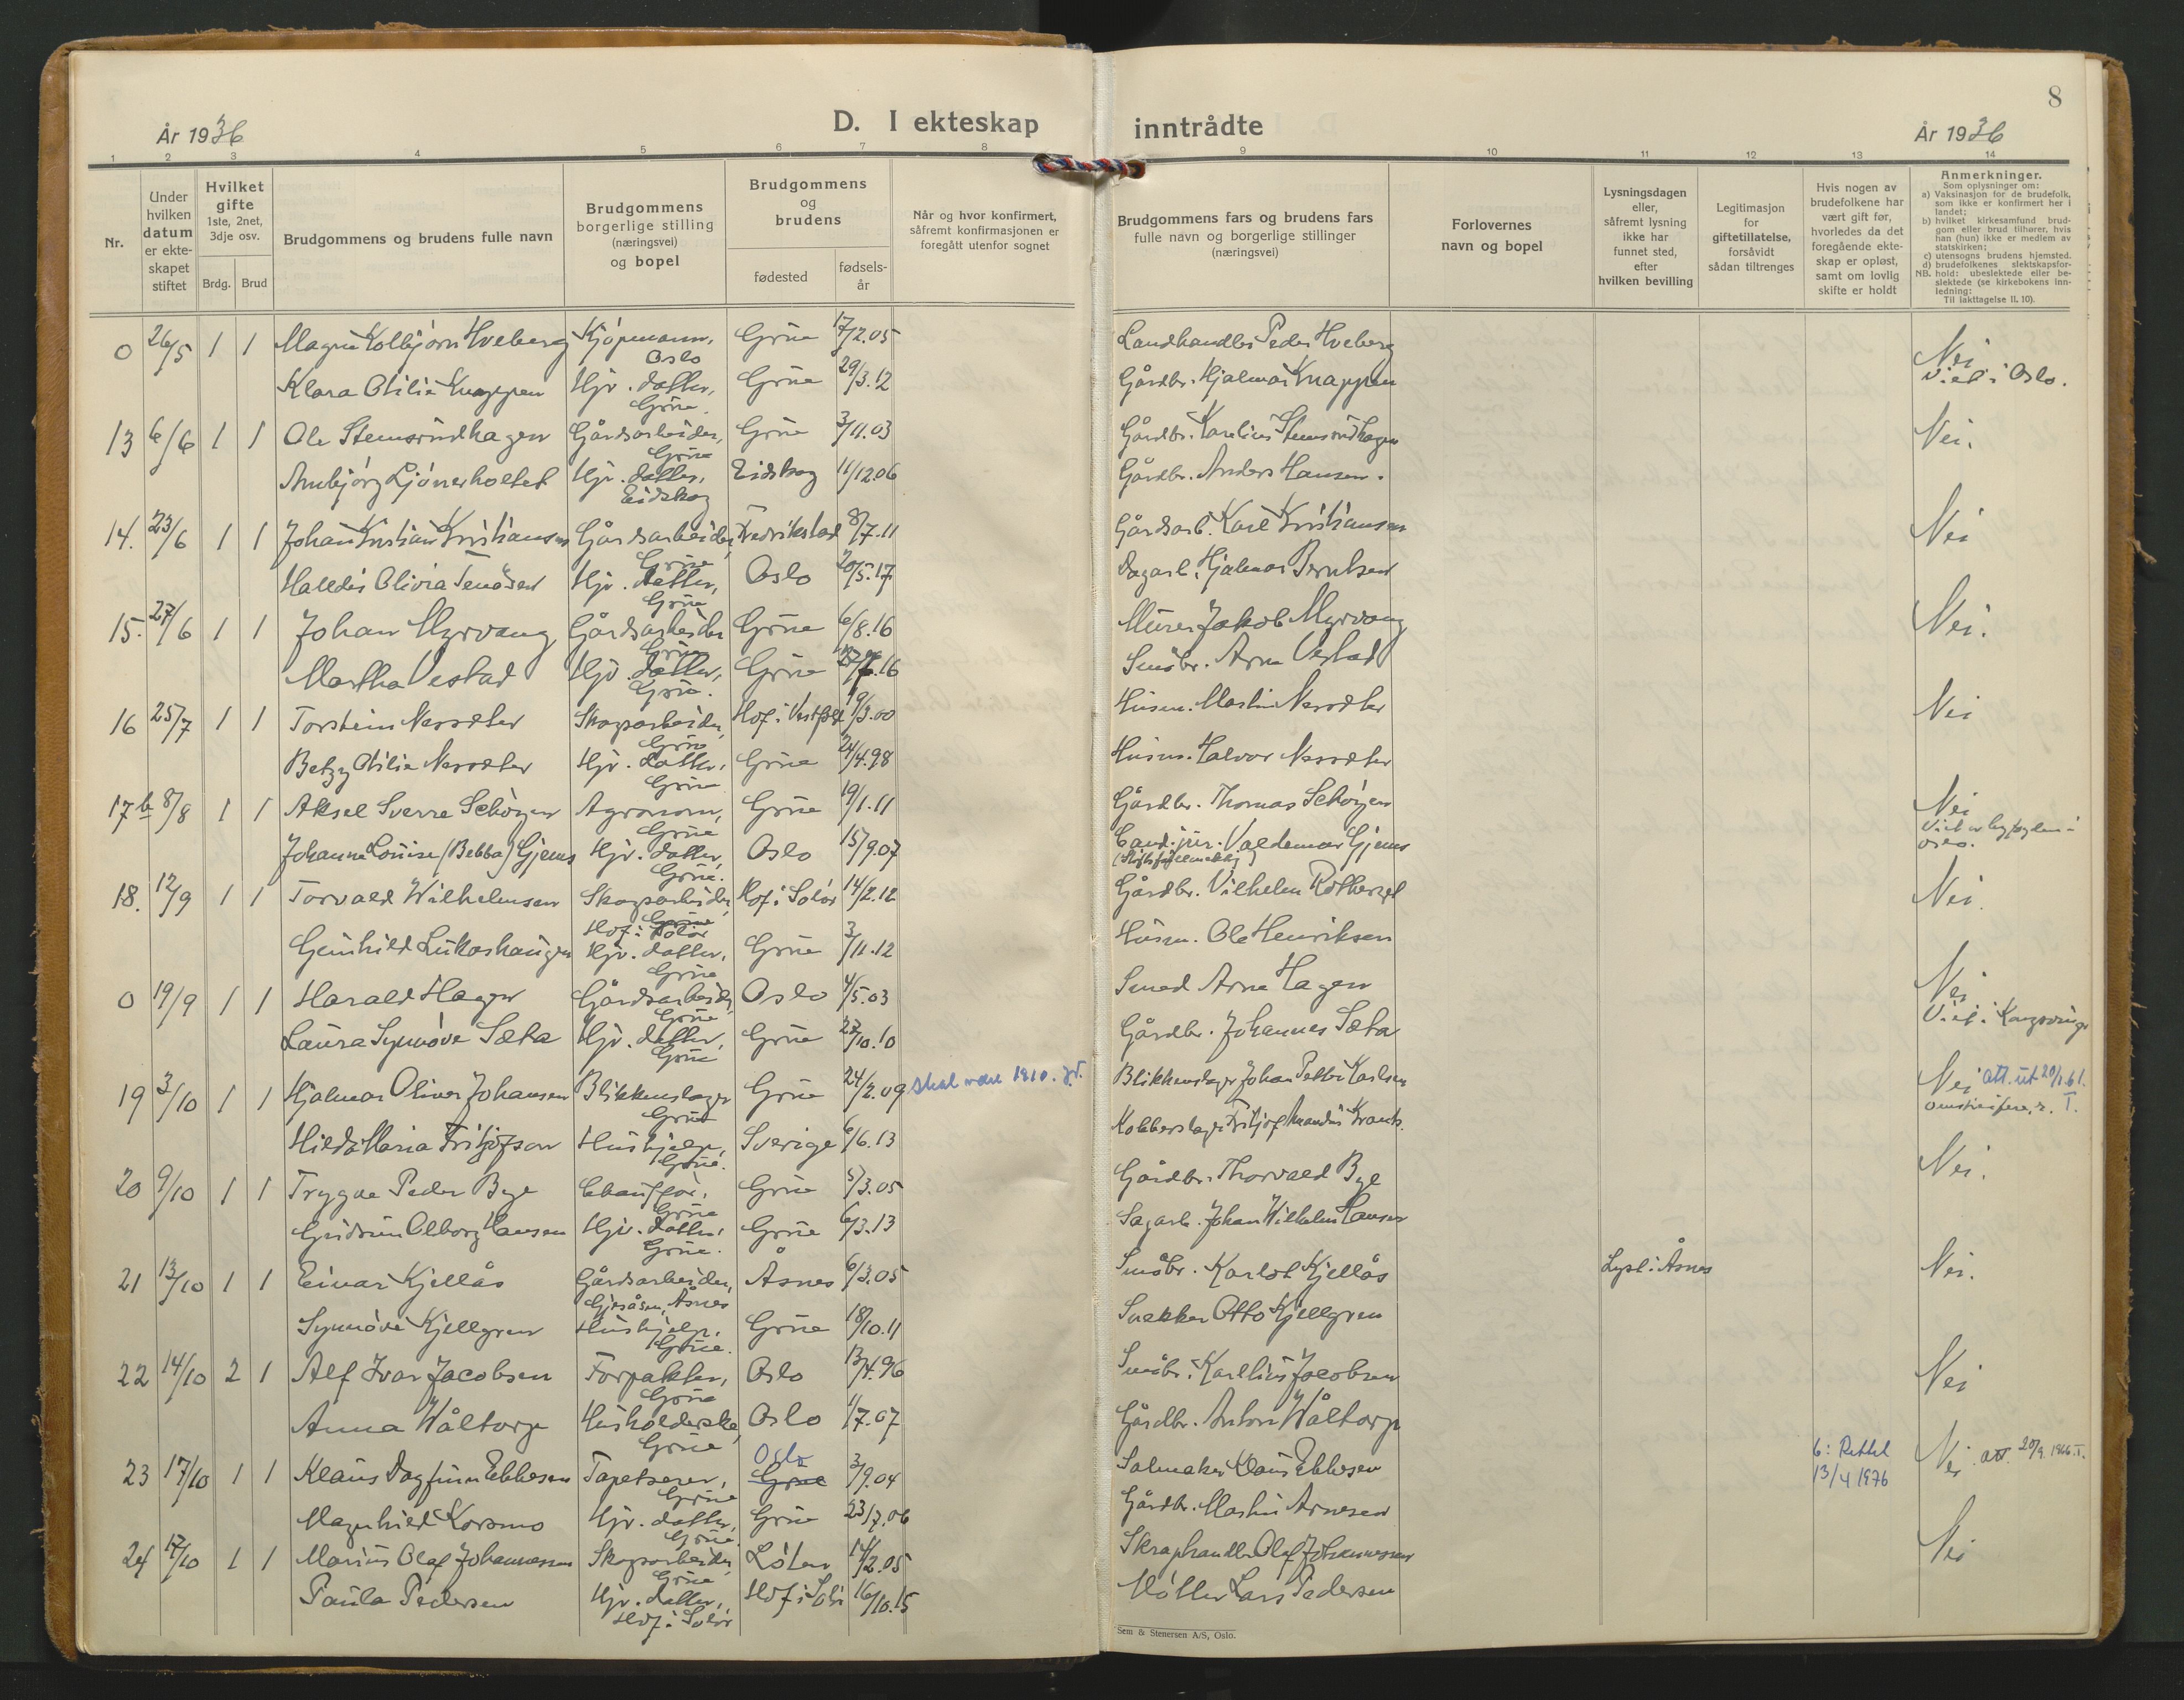 8
År 1936
D. I ekteskap inntrådte
År 1936
1 2 3 4 5 6 7 8 9 10 11 12 13 14
Nr.
Under hvilken datum er ekteskapet stiftet
Hvilket gifte 1ste, 2net, 3dje osv.
Brdg. Brud
Brudgommens og brudens fulle navn
Brudgommens borgerlige stilling (næringsvei) og bopel
Brudgommens og brudens
fødested
fødsels-år
Når og hvor konfirmert, såfremt konfirmasjonen er foregått utenfor sognet
Brudgommens fars og brudens fars fulle navn og borgerlige stillinger (næringsvei)
Forlovernes navn og bopel
Lysningsdagen eller, såfremt lysning ikke har funnet sted, efter hvilken bevilling
Legitimasjon for giftetillatelse, forsåvidt sådan tiltrenges
Hvis nogen av brudefolkene har vært gift før, hvorledes da det foregående ekteskap er opløst, samt om lovlig skifte er holdt
Anmerkninger.
Som oplysninger om:
a) Vaksinasjon for de brudefolk, som ikke er konfirmert her i landet;
b) hvilket kirkesamfund brudgom eller brud tilhører, hvis han (hun) ikke er medlem av statskirken;
c) utensogns brudens hjemsted.
d) brudefolkenes slektskapsforhold: ubeslektede eller beslektede (se kirkebokens innledning:
NB. Til iakttagelse II, 10).
0 26/5 1 1 Magne Kolbjörn Hveberg Kjöpmann, Oslo Grue 17/2.05 Landhandler Peder Hveberg Nei Viet i Oslo.
Klara Otilie Knappen Hjv. datter, Grue. Grue 29/3.12 Gårdbr. Hjalmar Knappen
13 6/6 1 1 Ole Stemsrudhagen Gårdsarbeider, Grue Grue 3/11.03 Gårdbr. Karelius Stemsrudhagen Nei.
Annbjörg Ljönerholtet Hjv. datter, Eidskog Eidskog 11/12.06 Gårdbr. Anders Hansen.
14. 23/6 1 1 Johan Kristian Kristiansen Gårdsarbeider, Grue Fredrikstad 8/7.11 Gårdsarb. Karl Kristiansen Nei
Halldis Olivia Hjv. datter, Grue Oslo 20/5.17 Dagarb. Hjalmar Berntsen
15. 27/6 1 1 Johan Myrvang Gårdsarbeider Grue Grue 6/8.16 Murer Jakob Myrvang Nei.
Martha Vestad Hjv. datter, Grue. Grue Småbr. Arne Vestad
16 25/7 1 1 Torstein Nesseter Skogsarbeider, Grue Hof i Vestfold 19/3.00 Husm. Martin Nesseter Nei
Betzy Otilie Nesseter Hjv. datter, Grue Grue 24/4.98 Husm. Halvor Nesseter
17 b 8/8 1 1 Aksel Sverre Schöyen Agronom, Grue Grue 19/1.11 Gårdbr. Thomas Schöyen Nei
Johanne Louise (Bebba) Gjems Hjv. datter, Grue. Oslo 15/9.07 Cand. jur. Valdemar Gjems
18. 12/9 1 1 Torvald Wilhelmsen Skogsarbeider, Hof i Solör Hof i Solör 14/2.12 Gårdbr. Vilhelm Nei
Gunhild Lukashaugen Hjv. datter, Grue Grue 3/11.12 Husm. Ole Henriksen
0 19/9 1 1 Harald Hagen Gårdsarbeider, Grue Oslo 4/5.03 Smed Arne Hagen Nei Viet i Kongsvinger
Laura Synnöve Sæta Hjv. datter, Grue Grue 23/10.10 Gårdbr. Johannes Sæta
19 3/10 1 1 Hjalmar Oliver Johansen Blikkenslager Grue Grue 24/2.09 Skal være 1910. Blikkenslager Johan Petter Karlsen Nei att. ut 20/1.61.
Hilda Maria Fritjofson Hushjelp, Grue. Sverige 6/6.13 Kobberslager Fritjof Amandus
20 9/10 1 1 Trygve Peder Bye Chauffør, Grue Grue 5/3.05 Gårdbr. Thorvald Bye Nei.
Gudrun Olborg Hansen Hjv. datter, Grue. Grue 6/3.13 Sagarb. Johan Wilhelm Hansen
21 13/10 1 1 Einar Kjellås Gårdsarbeider, Gjesåsen, Åsnes Åsnes 6/3.05 Småbr. Karlot Kjellås Lyst i Åsnes Nei.
Synnöve Kjellgren Hushjelp, Grue. Grue 18/10.11 Snekker Otto Kjellgren
22 14/10 2 1 Alf Ivar Jacobsen Forpakter, Grue Oslo 13/4.96 Småbr. Karelius Jacobsen Nei
Anna Wåltorp Husholderske, Grue Oslo 1/7.07 Gårdbr. Anton Wåltorp
23 17/10 1 1 Klaus Dagfinn Ebbesen Tapetserer, Grue Oslo Grue 3/9.04 Salmaker Klaus Ebbesen 6: Rettet 13/4 1976 Nei att. 20/9 1966
Magnhild Korsmo Hjv. datter, Grue. Grue 23/7.06 Gårdbr. Martin Arnesen
24 17/10 1 1 Marius Olaf Johannessen Skogsarbeider, Grue Löten 14/2.05 Skraphandler Olaf Johannessen Nei
Paula Pedersen Hjv. datter, Hof i Solör Hof i Solör 16/10.15 Möller Lars Pedersen
Sem & Stenersen A/S, Oslo.